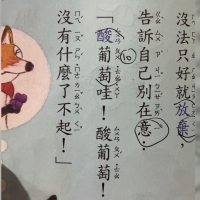 沒法只好就放棄，
告訴自己別在意：⑩
「酸葡萄哇！酸葡萄！
沒有什麼了不起！」